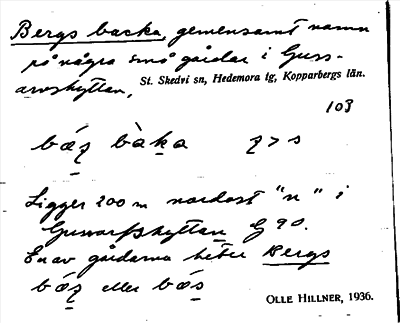 Bergs backa, gemensamt namn
på några små gårdar i Guss-
arvshyttan,
St. Skedvi sn, Hedemora tg, Kopparbergs län.
103
bæʒ bàka ʒ > s
Ligger 200 m nordost "n" i
Gussarfshyttan G 90.
En av gårdarna heter Bergs
bæʒ eller bæs
OLLE HILLNER, 1936.